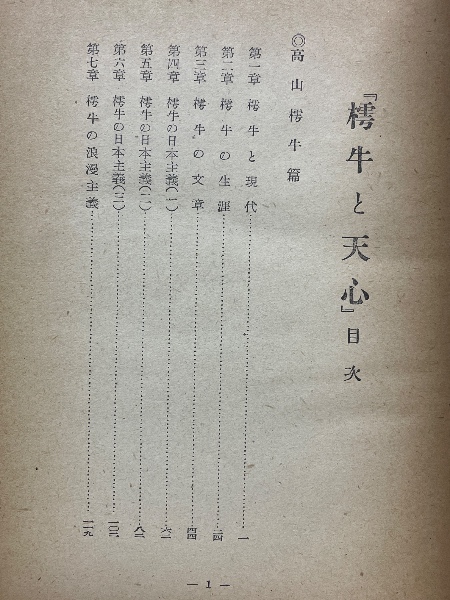 『樗牛と天心』目次
◎高山樗牛篇
第一章 樗牛と現代……一
第二章 樗牛の生涯……二四
第三章 樗牛の文章……四四
第四章 樗牛の日本主義(一)……六一
第五章 樗牛の日本主義(二)……八二
第六章 樗牛の日本主義(三)……一〇二
第七章 樗牛の浪漫主義……一一九
— 1 —